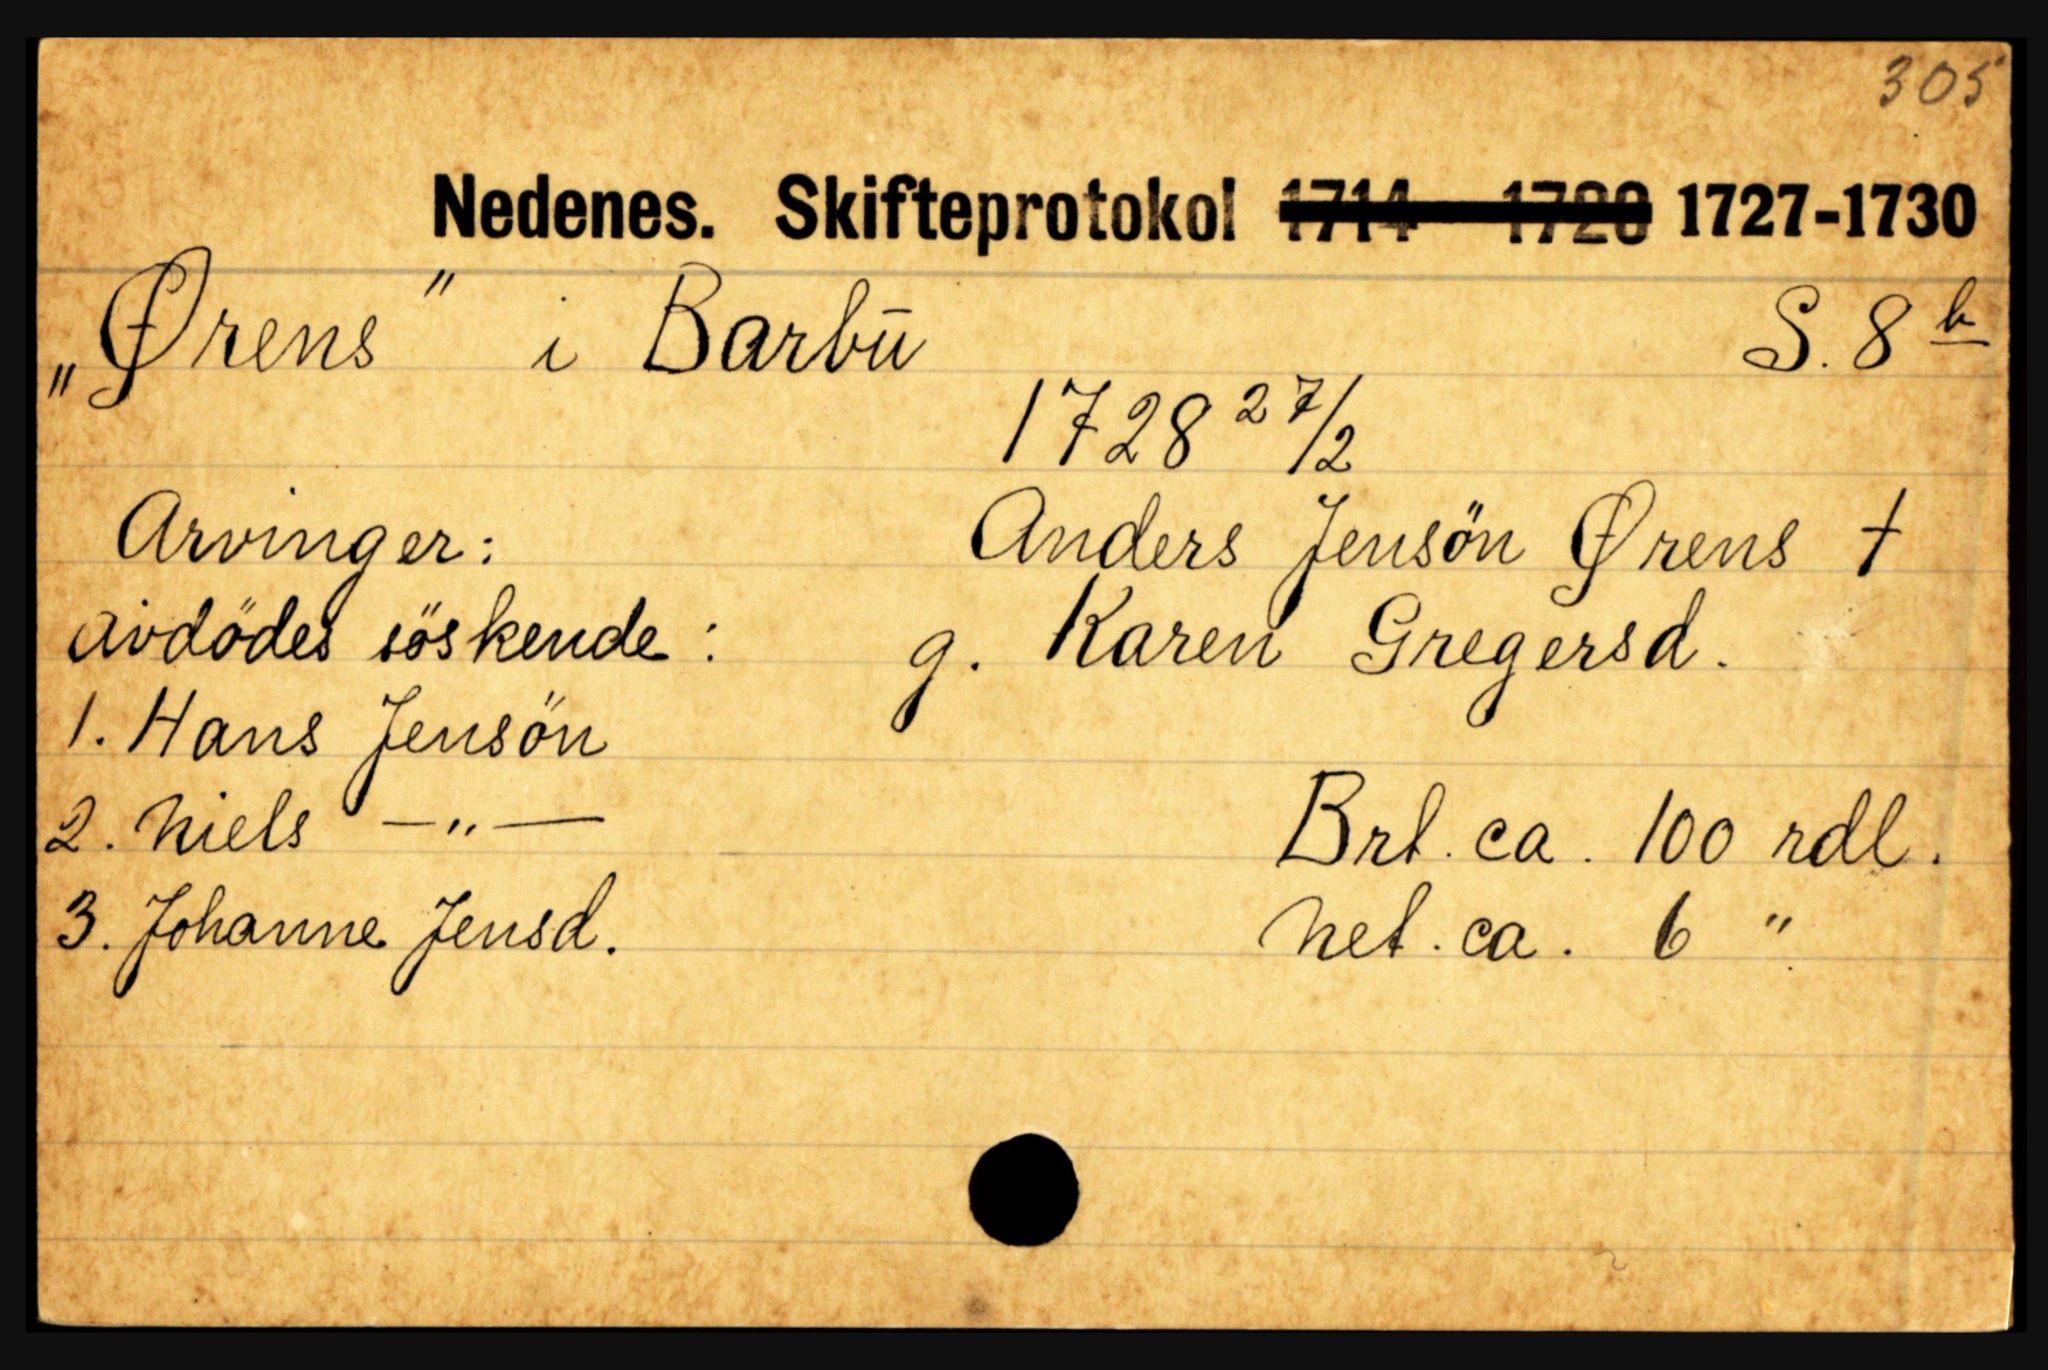 305
Nedenes. Skifteprotokol 1714 1728 1727-1730
„Ørens" i Barbū S. 8 b
1728 27/2
Arvinger: Anders Jensön Ørens †
avdödes söskende: g. Karen Gregersd.
1. Hans Jensön
2. Niels —"— Brt. ca. 100 rdl.
3. Johanne Jensd. Net. ca. 6 "